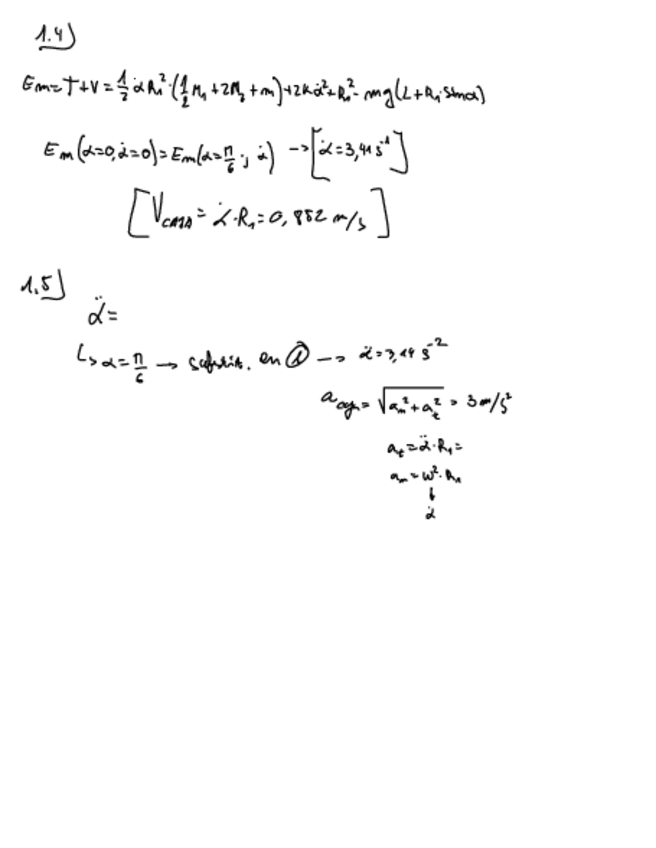 1.4)
Em=T+V=1/2 α̇ R₁²·(1/2 M₁+2M₂+m)+2kα²+R₁²- mg(L+R₁·Sinα)
Em(α=0,α̇=0)=Em(α=π/6; α̇) →[α̇=3,41 s⁻¹]
[V_CAJA= α̇·R₁=0,852 m/s]
1.5)
α̈=
↳ α=π/6 → en ① → α̈=3,49 s⁻²
a = √(aₘ²+aₜ²) = 3 m/s²
aₜ=α̈·R₁=
aₘ=ω²·R₁
↓
α̇